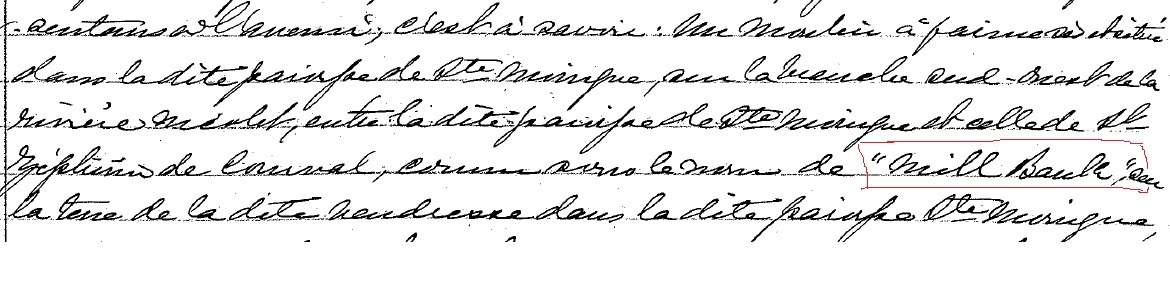 -sentans et l'avenir, c'est à savoir: Un moulin à farine sis et situé
dans la dite paroisse de Ste Monique, sur la branche sud-ouest de la
rivière Nicolet, entre la dite paroisse de Ste Monique et celle de St
Zéphirin de Courval, connu sous le nom de "Mill Bank", sur
la terre de la dite venderesse dans la dite paroisse Ste Monique,